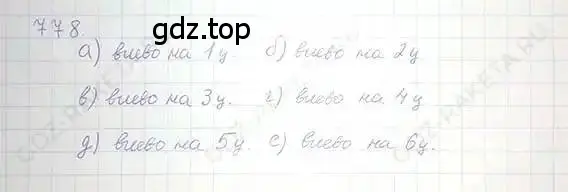 gdz.top
778.
а) влево на 1ц. б) влево на 2ц
в) влево на 3ц. г) влево на 4ц
д) влево на 5ц. е) влево на 6ц.